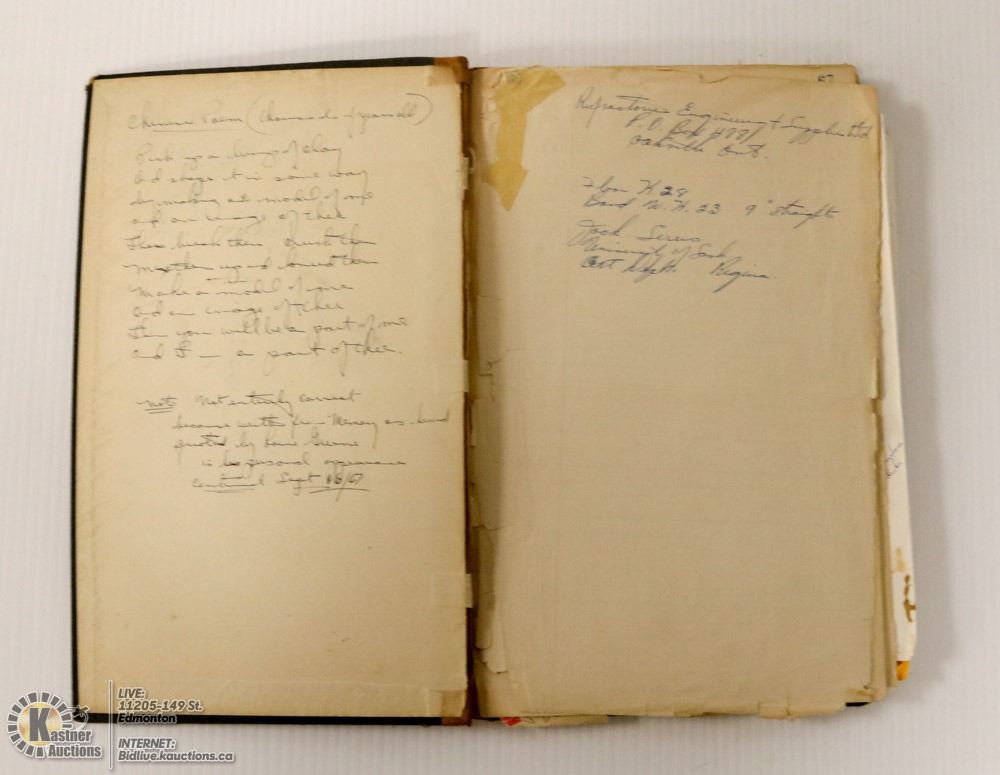 Chinese Poem (thousands of years old)
Pick up a lump of clay
And shape it in some way
by making a model of me
and an image of thee
Then break them, crush them
Mix them up and knead them
Make a model of me
And an image of thee
Then you will be a part of me
And I — a part of thee.
note Not entirely correct
because written from Memory as heard
quoted by Lorne Greene
in his personal appearance
Centennial Sept 16/67
67
Refractories Engineering & Supplies Ltd
P.O. Box 4991
Oakville Ont.
Floor K 28
K. 23 9" straights
Jack Sures
University of Sask
Art Dept. Regina
Kastner
Auctions
LIVE:
11205-149 St.
Edmonton
INTERNET:
Bidlive.kauctions.ca